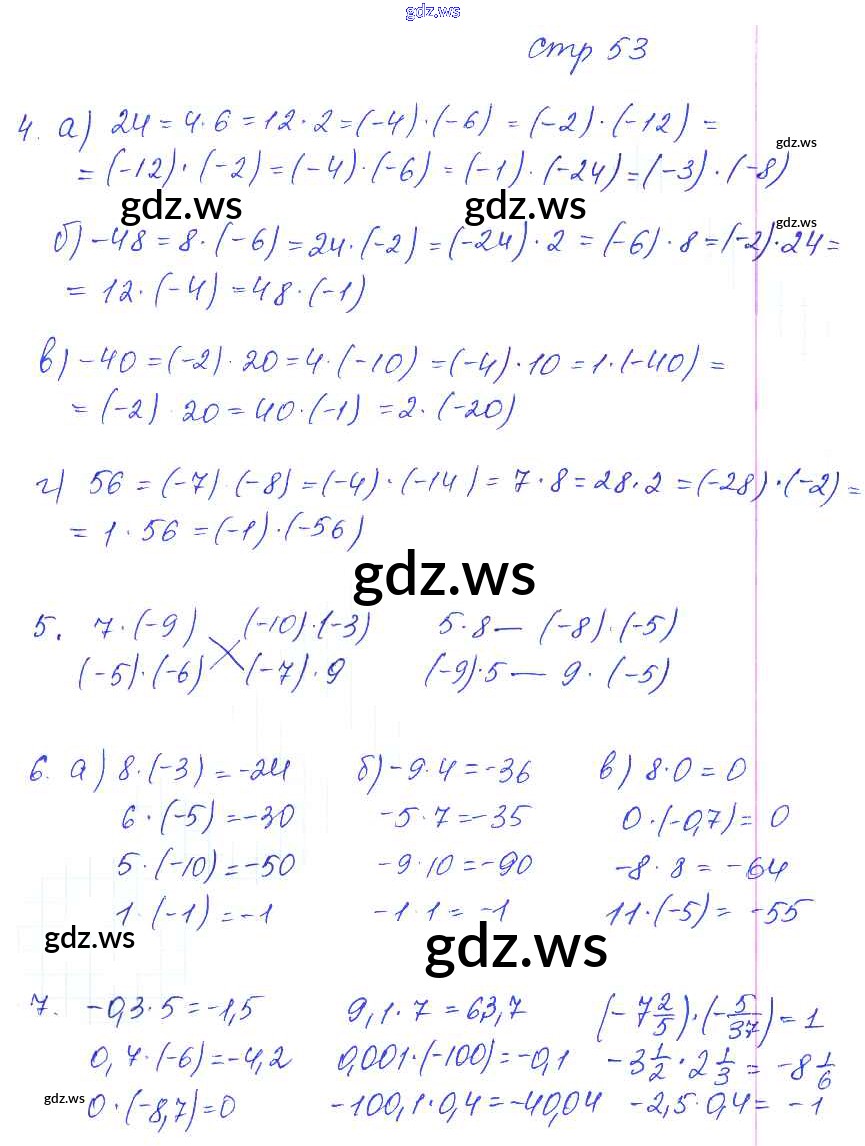 gdz.ws
стр 53
4. а) 24 = 4·6 = 12·2 = (-4)·(-6) = (-2)·(-12) =
gdz.ws
= (-12)·(-2) = (-4)·(-6) = (-1)·(-24) = (-3)·(-8)
gdz.ws gdz.ws gdz.ws
б) -48 = 8·(-6) = 24·(-2) = (-24)·2 = (-6)·8 = (-2)·24 =
= 12·(-4) = 48·(-1)
в) -40 = (-2)·20 = 4·(-10) = (-4)·10 = 1·(-40) =
= (-2)·20 = 40·(-1) = 2·(-20)
г) 56 = (-7)·(-8) = (-4)·(-14) = 7·8 = 28·2 = (-28)·(-2) =
= 1·56 = (-1)·(-56)
gdz.ws
5. 7·(-9) (-10)·(-3) 5·8 — (-8)·(-5)
(-5)·(-6) (-7)·9 (-9)·5 — 9·(-5)
6. а) 8·(-3) = -24 б) -9·4 = -36 в) 8·0 = 0
6·(-5) = -30 -5·7 = -35 0·(-0,7) = 0
5·(-10) = -50 -9·10 = -90 -8·8 = -64
1·(-1) = -1 -1·1 = -1 11·(-5) = -55
gdz.ws gdz.ws
7. -0,3·5 = -1,5 9,1·7 = 63,7 (-7 2/5)·(-5/37) = 1
0,7·(-6) = -4,2 0,001·(-100) = -0,1 -3 1/2·2 1/3 = -8 1/6
gdz.ws
0·(-8,7) = 0 -100,1·0,4 = -40,04 -2,5·0,4 = -1